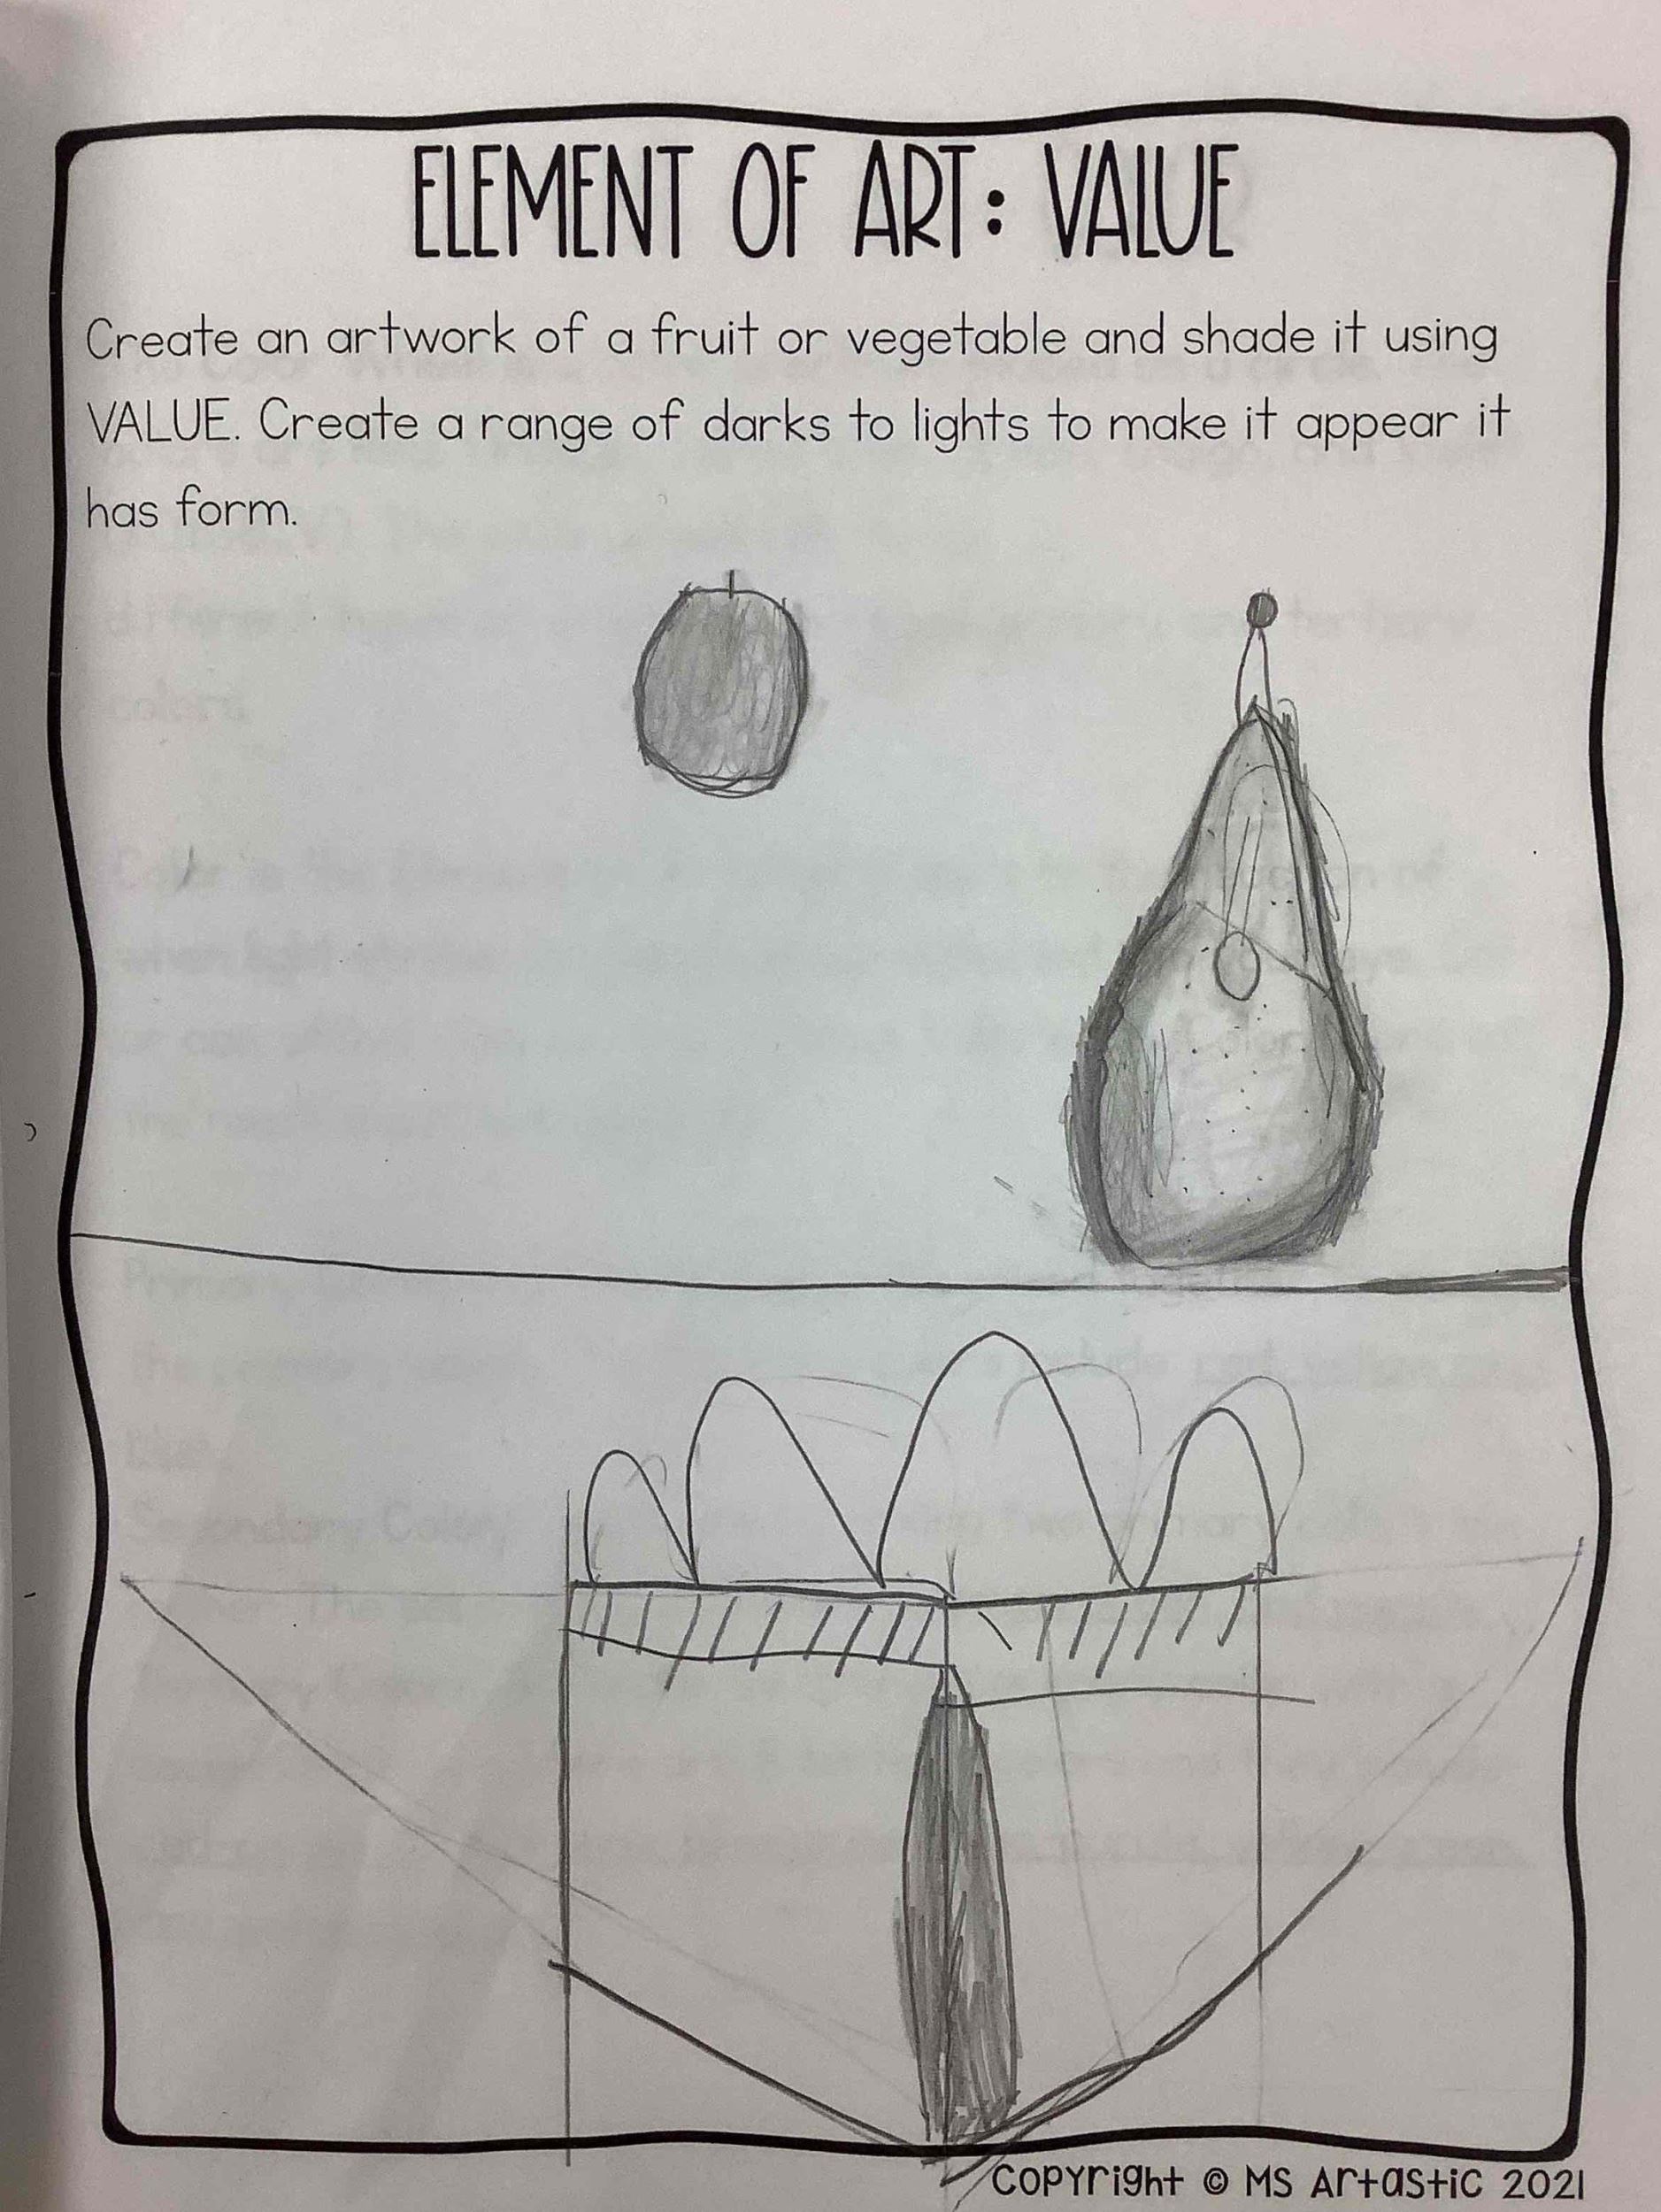 ELEMENT OF ART: VALUE
Create an artwork of a fruit or vegetable and shade it using
VALUE. Create a range of darks to lights to make it appear it
has form.
Copyright © MS Artastic 2021